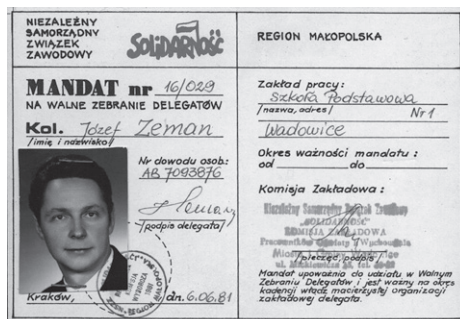 NIEZALEŻNY
SAMORZĄDNY
ZWIĄZEK
ZAWODOWY
SOLIDARNOŚĆ
MANDAT nr 16/029
NA WALNE ZEBRANIE DELEGATÓW
Kol. Józef Zeman
/imię i nazwisko/
Nr dowodu osob:
AB 7093876
/podpis delegata/
Kraków, dn. 6.06.81
REGION MAŁOPOLSKA
Zakład pracy:
Szkoła Podstawowa
/nazwa, adres/ Nr 1
Wadowice
Okres ważności mandatu:
od do
Komisja Zakładowa:
Niezależny Samorządny Związek Zawodowy
„SOLIDARNOŚĆ"
KOMISJA ZAKŁADOWA
Pracowników Oświaty i Wychowania
/pieczęć, podpis/
Mandat upoważnia do udziału w Walnym
Zebraniu Delegatów i jest ważny na okres
kadencji władz macierzystej organizacji
zakładowej delegata.